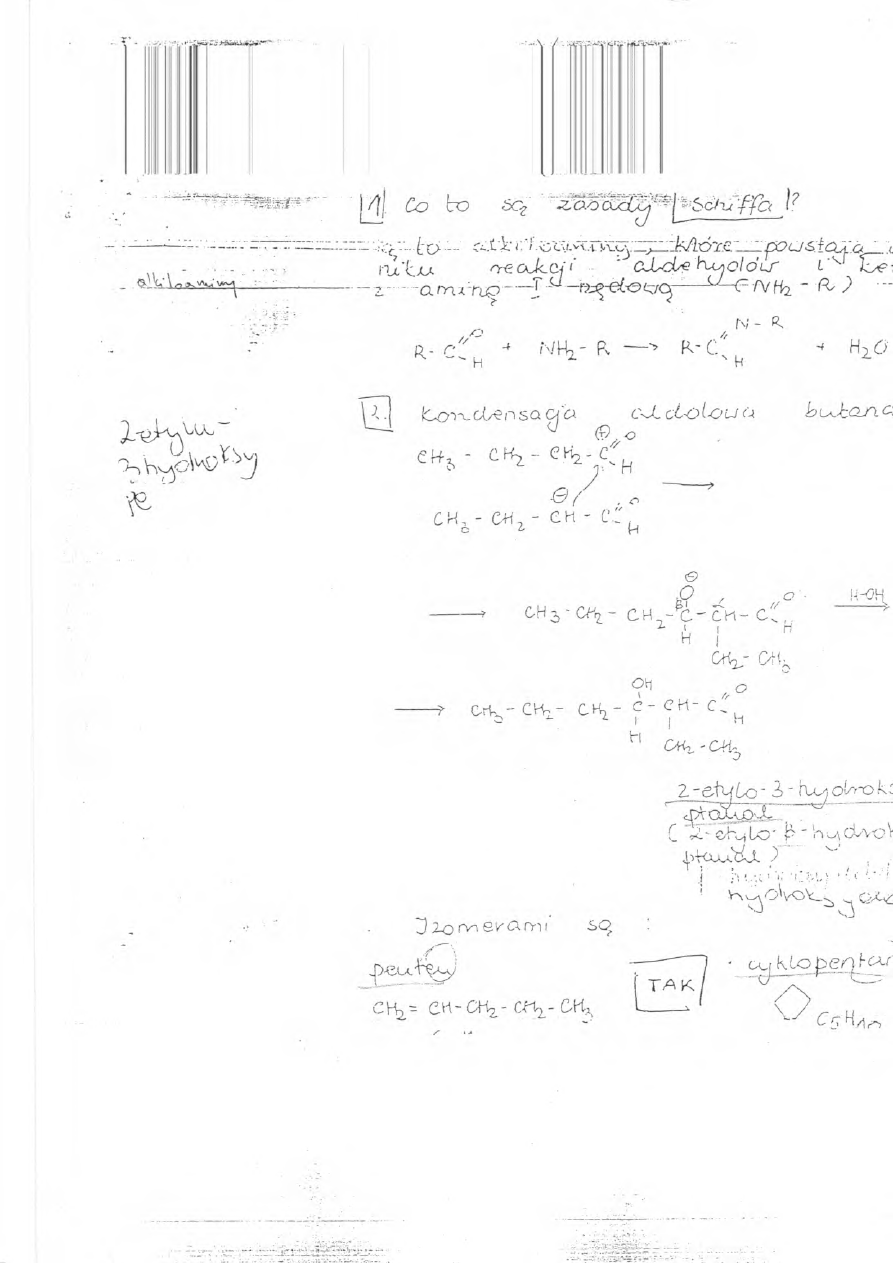 1 Co to są zasady Schiffa?
są to alkiloaminy, które powstają
niku reakcji aldehydów i ke
alkiloaminy
z aminą I rzędową (NH2-R)
R-C(=O)-H + NH2-R → R-C(=N-R)-H + H2O
2. Kondensacja aldolowa butana
2-etylu-
3hydroksy
CH3 - CH2 - CH2 - C⊕(=O)-H
CH3 - CH2 - CH⊖ - C(=O)-H →
→ CH3-CH2-CH2-C(O⊖)(H)-CH(CH2-CH3)-C(=O)-H H-OH →
→ CH3-CH2-CH2-C(OH)(H)-CH(CH2-CH3)-C(=O)-H
2-etylo-3-hydroks
ptanal
(2-etylo-β-hydrok
ptanal)
hydroksy
Izomerami są :
penten
TAK
· cyklopentan
CH2 = CH-CH2-CH2-CH3
C5H10